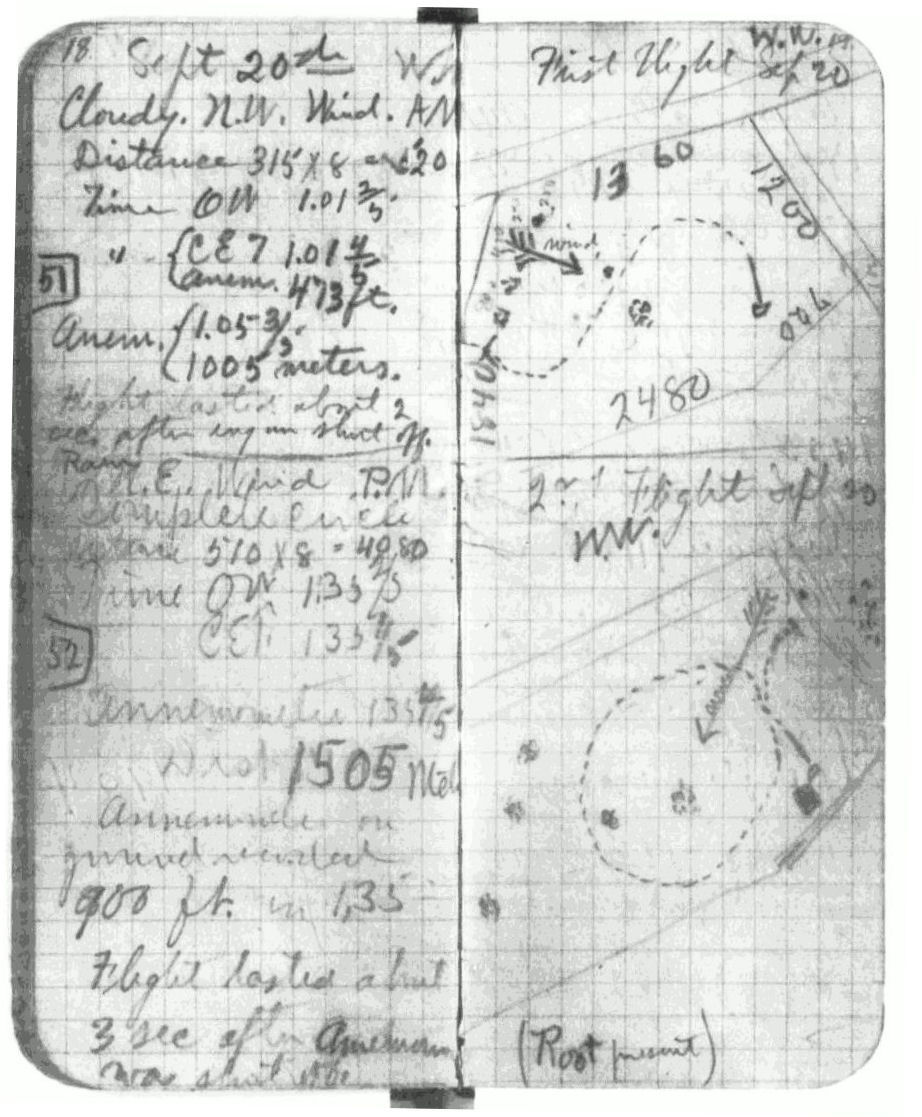 18 Sept 20th W.
Cloudy. N.W. Wind. AM
Distance 315 X 8 = 2520
Time OW 1.01 2/5
" CET 1.01 4/5
anem. 473 ft.
51
Anem. 1.05 3/5
1005 meters.
Flight lasted about 2
sec. after engine shut off.
N.E. Wind P.M.
Complete Circle
Distance 510 X 8 = 4080
Time OW 1.35 2/5
CET 1.35 4/5
52
Annemometer 1.35 4/5
Dist 1505 Met
Annemometer on
ground recorded
900 ft. in 1,35
Flight lasted about
3 sec after Annemom
was shut off
First Flight
W.W.
Sep 20
1360
1200
wind
720
1840
2480
2nd Flight Sept 20
W.W.
wind
(Root present)